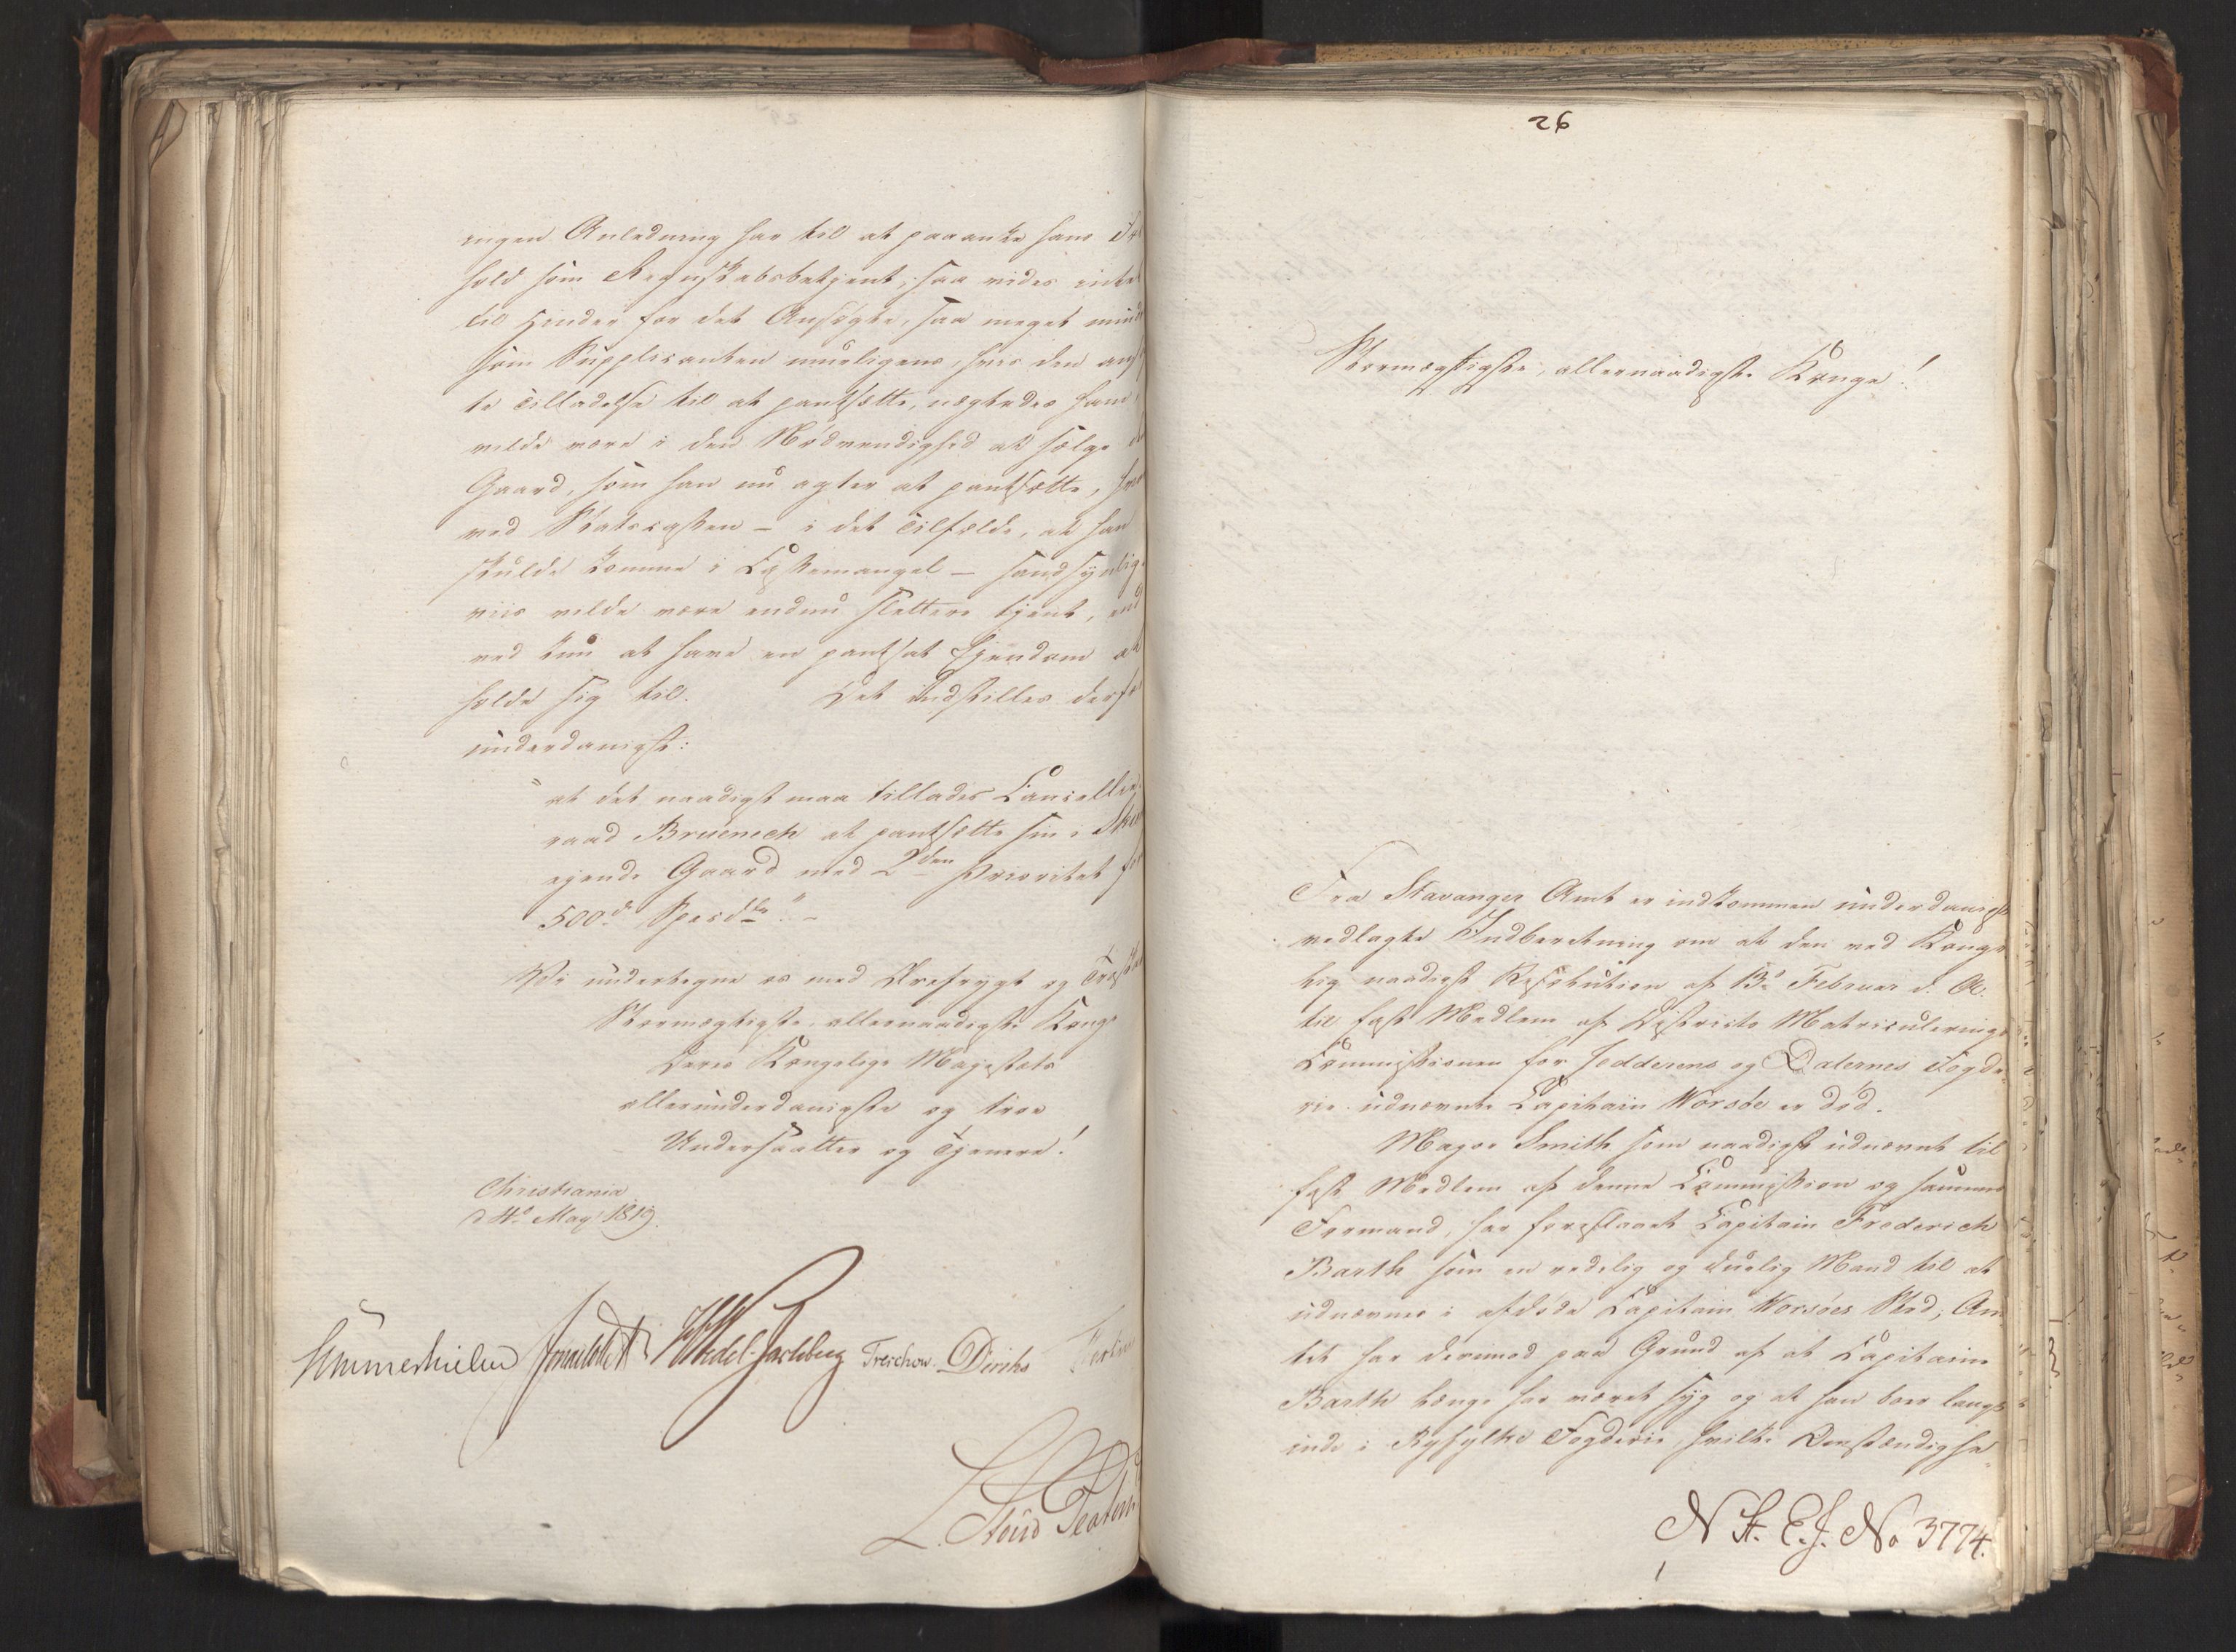 ingen Anledning har til at paaanke hans For
hold som Regnskabsbetjent, saa vides intet
til Hinder for det Ansøgte, saa meget mindre
som Supplicanten mueligens, hvis den ansøg
te Tilladelse til at pantsætte, nægtedes ham,
vilde være i den Nødvendighed at sælge den
Gaard, som han nu agter at pantsætte, hvor
ved Statscassen – i det Tilfælde, at han
skulde komme i Cassemangel – sandsynlig
viis vilde være endnu slettere tjent, end
ved kun at have en pantsat Ejendom at
holde sig til. Det indstilles derfor
underdanigst:
"at det naadigst maa tillades Cancellie
raad Bruenech at pantsætte sin i Skien
ejende Gaard med 2den Prioritet for
500de Specd." –
Vi undertegne os med Ærefrygt og Troskab
Stormægtigste, allernaadigste Konge
Deres Kongelige Majestæts
allerunderdanigste og troe
Undersaatter og Tjenere!
Christiania
d 4de May 1819.
Sommerhielm Jonas Collett HWedel-Jarlsberg Treschow Diriks
L. Stoud Platou
26
Stormægtigste, allernaadigste Konge!
Fra Stavanger Amt er indkommen underdanigst
vedlagte Indberetning om at den ved Konge
lig naadigst Resolution af 13de Februar d. A.
til fast Medlem af Districts Matriculerings
Commissionen for Jedderens og Dalernes Fogde-
rie udnævnte Capitain Worsöe er død.
Major Smith som naadigst udnævnt til
fast Medlem af denne Commission og sammes
Formand, har foreslaaet Capitain Frederich
Barth som en redelig og duelig Mand til at
udnævnes i afdøde Capitain Worsöes Sted; Am
tet har derimod paa Grund af at Capitain
Barth længe har været syg og at han boer langt
inde i Ryfylke Fogderie, hvilke Omstændighe-
N St. E. J. No 3774.